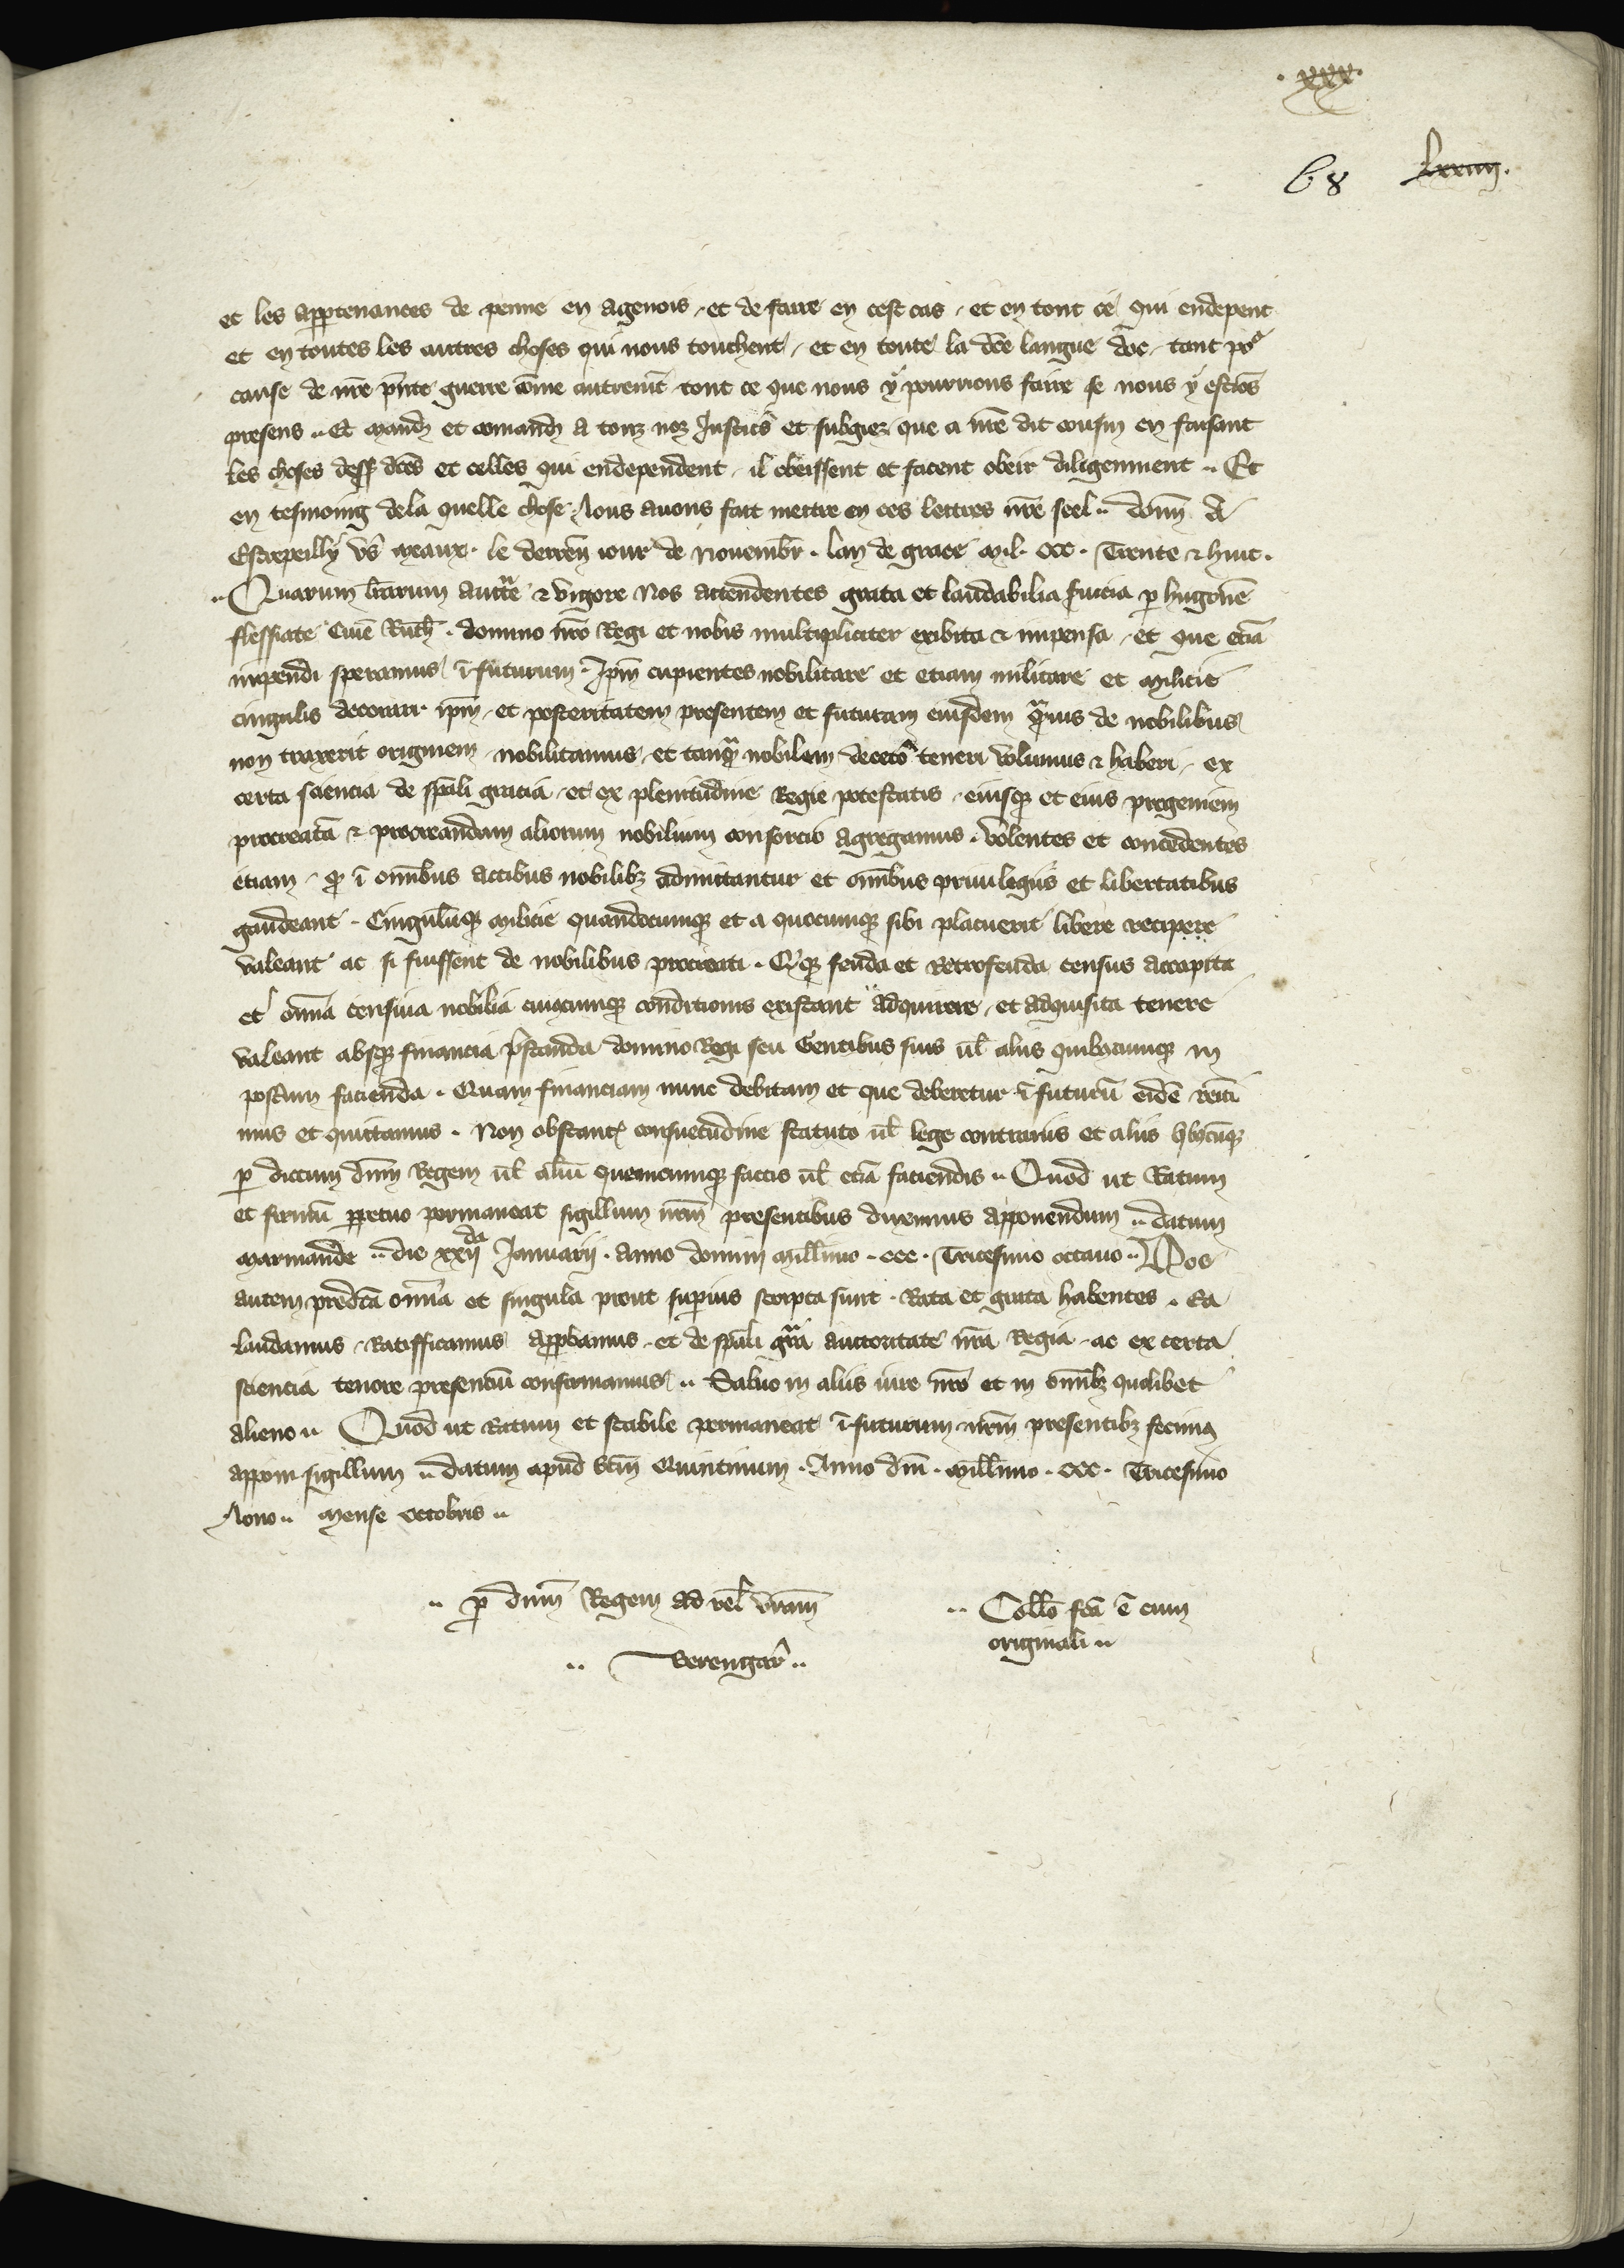 . xxx.
68 lxxiiij.
et les appten̄ances de penne en agenois, et de faire en cest cas, et en tout ce qui endepent
et en toutes les autres choses qui nous touchent, et en toute la dc̄e langue doc, tant po᷑
cause de nr̄e pn̄te guerre com̄e autremt̄ tout ce que nous y pourrions faire se nous y estiōs
presens .. Et mand̄ et comand̄ a touz noz Justic̄ et subgiez que a nr̄e dit cousin en faisant
les choses dess᷑ dc̄es et celles qui endependent, il obeissent et facent obeir diligenment .. Et
en tesmoing dela quelle chose Nous auons fait mettre en ces lettres nr̄e seel .. donn̄ A
Estrepeilly vs̄ meaux . le derreñ iour de Nouembr̄ . lan de grace mil . ccc . Trente & huit .
.. Quarum lr̄arum auctt̄e & vigore Nos attendentes grata et laudabilia s̄uicia p̄ hugonē
flessiate Ciuē Ruth̄ . domino nr̄o Regi et nobis multipliciter exibita & impensa, et que etiā
impendi speramus ī futurum . Ip̄m cupientes nobilitare et etiam militare et milicie
cingulis decorari ip̄m, et posteritatem presentem et futuram eiusdem q̄uis de nobilibus
non traxerit originem, nobilitamus, et tanq̄ nobilem deceto᷑ teneri volumus & haberi, ex
certa sciencia de sp̄ali gracia, et ex plenitudine Regie potestatis, eiusq᷑ et eius progeniem
procreatā & procreandam aliorum nobilium consorcio agregamus . volentes et concedentes
etiam, q̄ ī om̄ibus actibus nobilibȝ admittantur et om̄ibus priuilegiis et libertatibus
gaudeant . Cingulūq᷑ milicie quandocumq᷑ et a quocumq᷑ sibi placuerit libere recipere
valeant ac si fuissent de nobilibus procreati . Q̄q᷑ feuda et Retrofeuda census accapita
et om̄ia censiua nobilia cuiuscumq᷑ conditionis existant adquirere, et adquisita tenere
valeant absq᷑ financia p̄standa domino Regi seu Gentibus suis ul̄ aliis quibuscumq᷑ in
post̄um facienda . Quam financiam nunc debitam et que deberetur ī futurū eidē remi
mus et quittamus . Non obstant᷑ consuetudine statuto ul̄ lege contrariis et aliis q̄buscūq᷑
p̄ dictum dn̄m Regem ul̄ aliū quemcumq᷑ factis ul̄ etiā faciendis .. Quod ut Ratum
et firmū ꝑpetuo permaneat sigillum nr̄m presentibus duximus apponendum .. datum
marmande .. die xxij da Januarij . anno domini mill̄imo . ccc . Tricesimo octauo .. Nos
autem predc̄a om̄ia et singula prout superius scripta sunt . Rata et grata habentes . Ea
laudamus, Ratifficamus app̄bamus, et de sp̄ali gr̄a auctoritate nr̄a Regia, ac ex certa
sciencia tenore presenciū confirmamus .. Saluo in aliis iure nr̄o et in om̄ibȝ quolibet
alieno .. Quod ut Ratum et stabile permaneat ī futurum nr̄m presentibȝ fecimus
apponi sigillum .. datum apud Sc̄m Quintinum . Anno dn̄i . mill̄imo . ccc . Tricesimo
Nono .. mense octobris ..
.. p̄ dn̄m Regem ad rel̄ vr̄am
.. Berengar̄ ..
.. Coll̄o fc̄a ē cum
originali ..